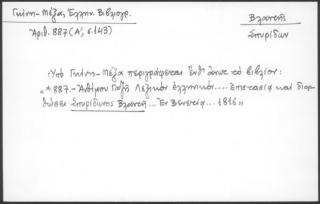 Γκίνη-Μέξα, Ἑλλην. Βιβλιογρ.
Βλαντῆς
Ἀριθ. 887 (Α', σ. 143)
Σπυρίδων
Ὑπὸ Γκίνη-Μέξα περιγράφεται ἐνθ' ἄνωτ. τὸ βιβλίον:
«*887.- Ἀνθίμου Γαζῆ Λεξικὸν ἑλληνικόν.... Ἐπιστασίᾳ καὶ διορ-
θώσει Σπυρίδωνος Βλαντῆ... Ἐν Βενετίᾳ... 1816»